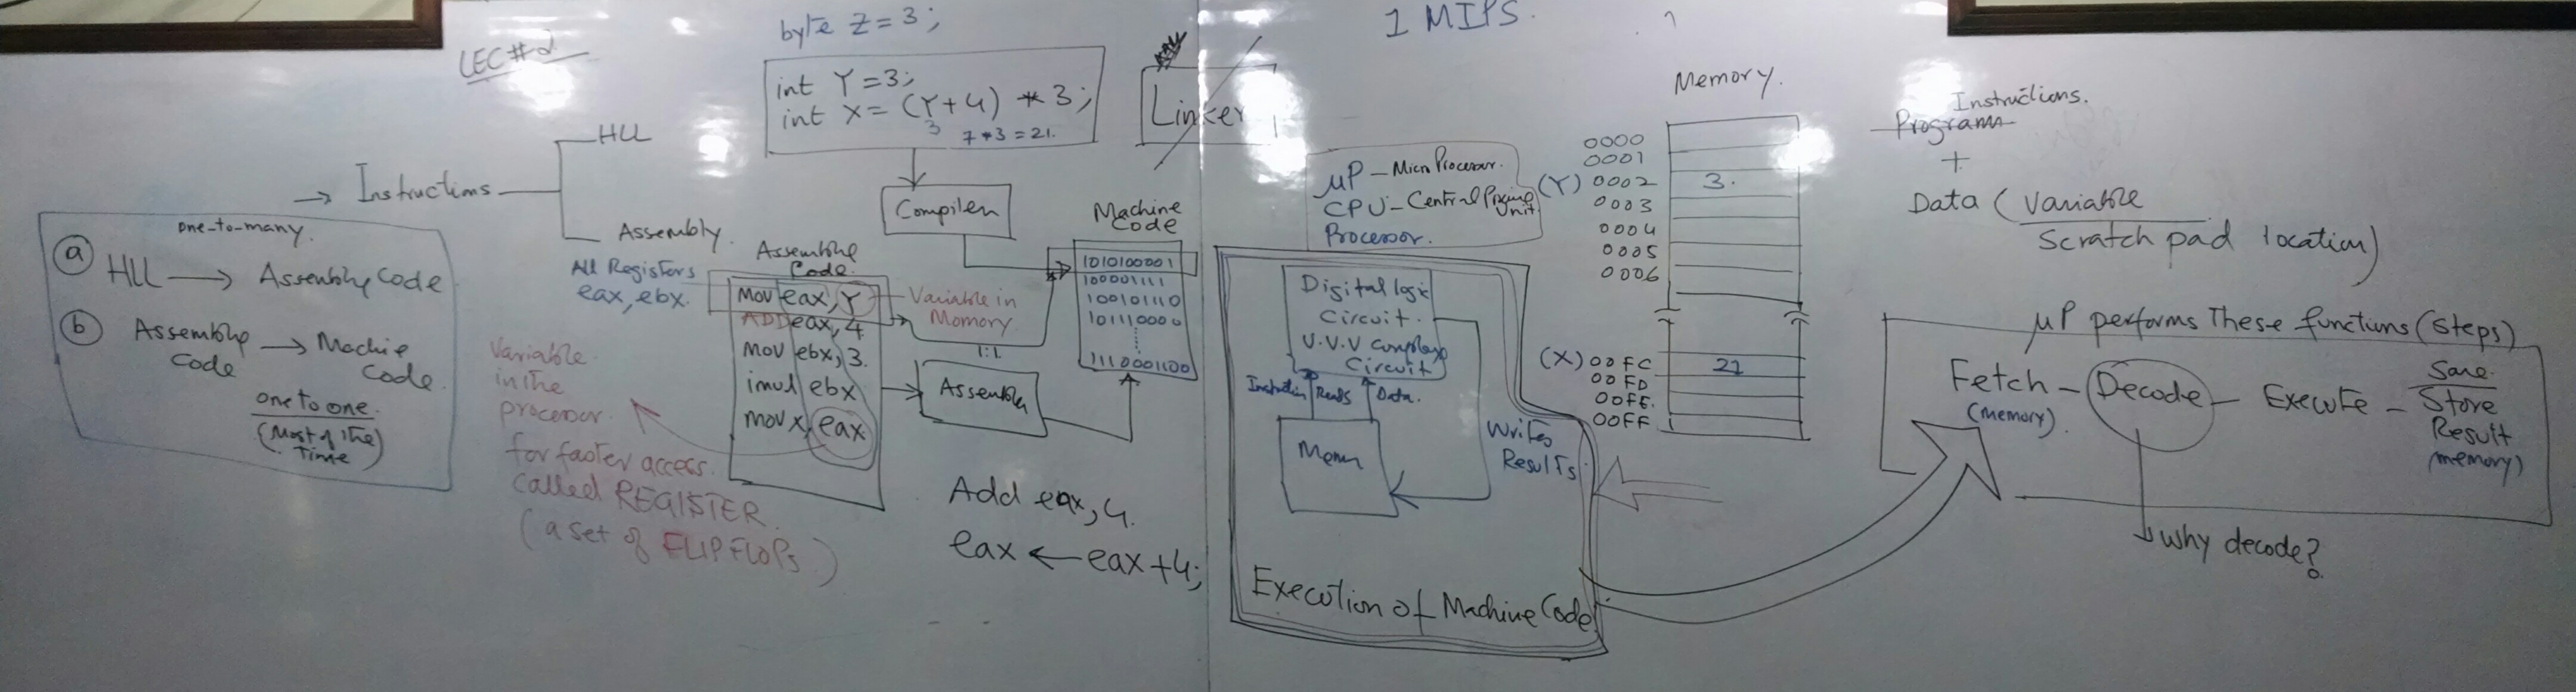 LEC#2
byte Z=3;
int Y=3;
int X=(Y+4) * 3;
3
7*3=21.
Linker
1 MIPS.
→ Instructions
HLL
Assembly.
one-to-many.
a
HLL → Assembly Code
b
Assembly Code → Machine Code
one to one.
(Most of the Time)
Compiler
Assembly
Code.
All Registers
eax, ebx.
Mov eax, Y
ADD eax, 4
Mov ebx, 3.
imul ebx
mov x, eax
Variable in
Memory
Variable
in the
processor.
for faster access.
called REGISTER.
(a set of FLIPFLOPs)
1:1
Assembler
Machine
Code
1010100001
100001111
100101110
101110000
1110001100
Add eax, 4.
eax ← eax+4;
μP – Micro Processor.
CPU – Central Processing Unit
Processor.
Digital logic
Circuit.
V.V.V Complex
Circuit
Instruction Reads Data.
Mem
Writes
Results
Execution of Machine Code
Memory.
0000
0001
(Y) 0002 3.
0003
0004
0005
0006
(X) 00FC 21
00FD
00FE.
00FF
Instructions.
Program
+
Data (Variable
Scratch pad location)
μP performs These functions (steps)
Fetch – Decode – Execute – Save
Store
Result
(memory)
(memory).
why decode?